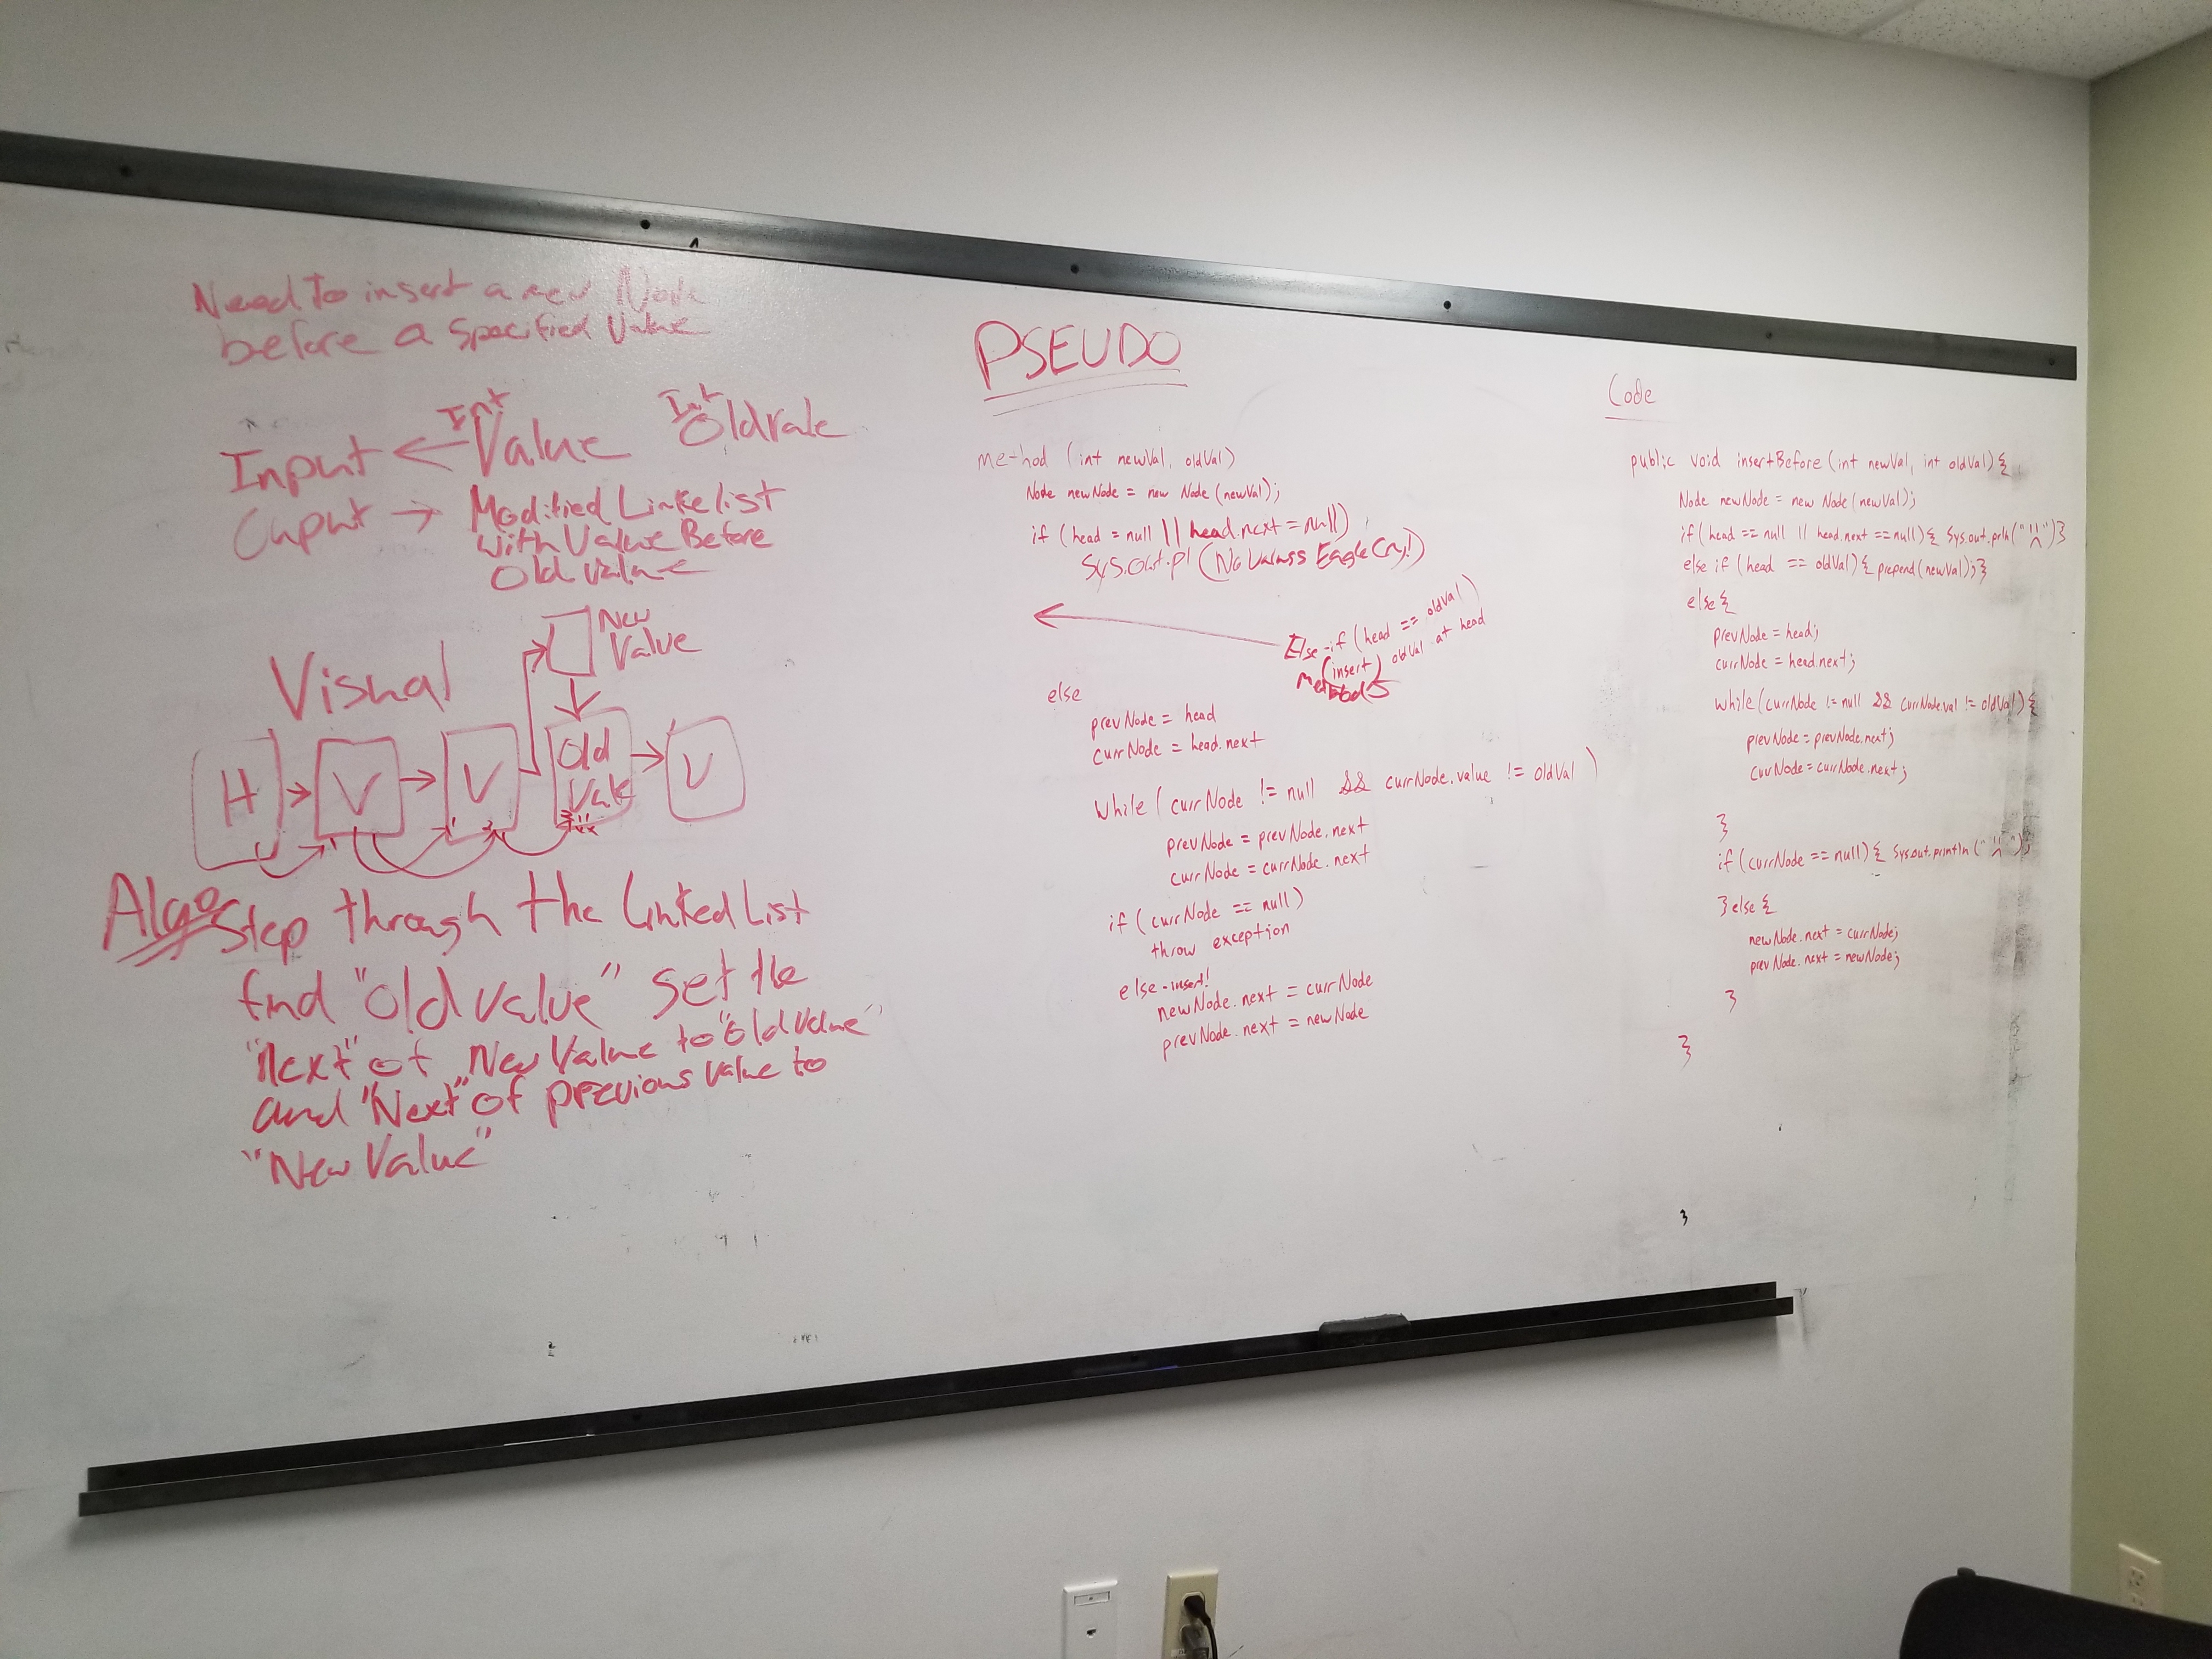 Need To insert a new Node
before a specified Value
Input ← Int Value Int Oldvale
Ouput → Modified Linkelist
with Value Before
Old value
Visual
New
Value
H → V → V
Old
Vale
→ V
Algo
Step through the Linked List
find "Old value" set the
"next" of New Value to "old value"
and "Next" of previous value to
"New Value"
PSEUDO
method (int newVal, oldVal)
Node newNode = new Node (newVal);
if (head = null || head.next = null)
Sys.out.pl (No Values Eagle Cry!)
Else-if (head == oldVal)
(insert) oldVal at head
else
prevNode = head
currNode = head.next
while (currNode != null && currNode.value != oldVal )
prevNode = prevNode.next
currNode = currNode.next
if (currNode == null)
throw exception
else-insert!
newNode.next = currNode
prevNode.next = newNode
Code
public void insertBefore (int newVal, int oldVal) {
Node newNode = new Node (newVal);
if (head == null || head.next == null) { Sys.out.prln (" ") }
else if (head == oldVal) { prepend (newVal); }
else {
prevNode = head;
currNode = head.next;
while (currNode != null && currNode.val != oldVal) {
prevNode = prevNode.next;
currNode = currNode.next;
}
if (currNode == null) { Sys.out.println (" ");
} else {
newNode.next = currNode;
prevNode.next = newNode;
}
}
3